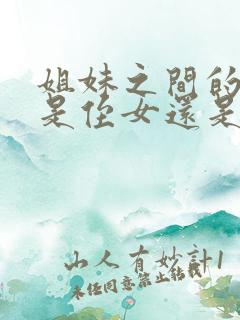 姐妹之間的
是侄女還是
山人有妙計1
未经同意禁止转载